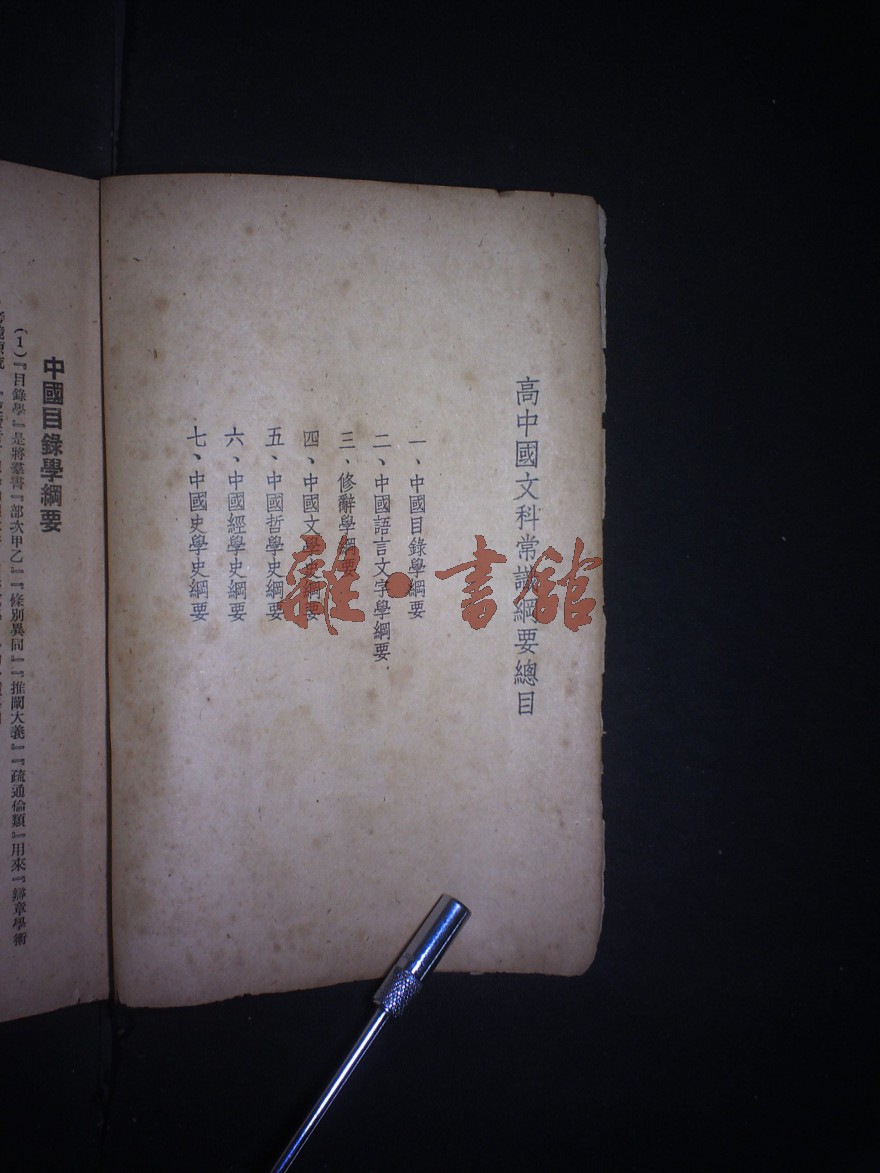 高中國文科常識綱要總目
一、中國目錄學綱要
二、中國語言文字學綱要
三、修辭學綱要
四、中國文學史綱要
五、中國哲學史綱要
六、中國經學史綱要
七、中國史學史綱要
雜·書館
中國目錄學綱要
(1)『目錄學』是將羣書『部次甲乙』『條別異同』『推闡大義』『疏通倫類』用來『辨章學術